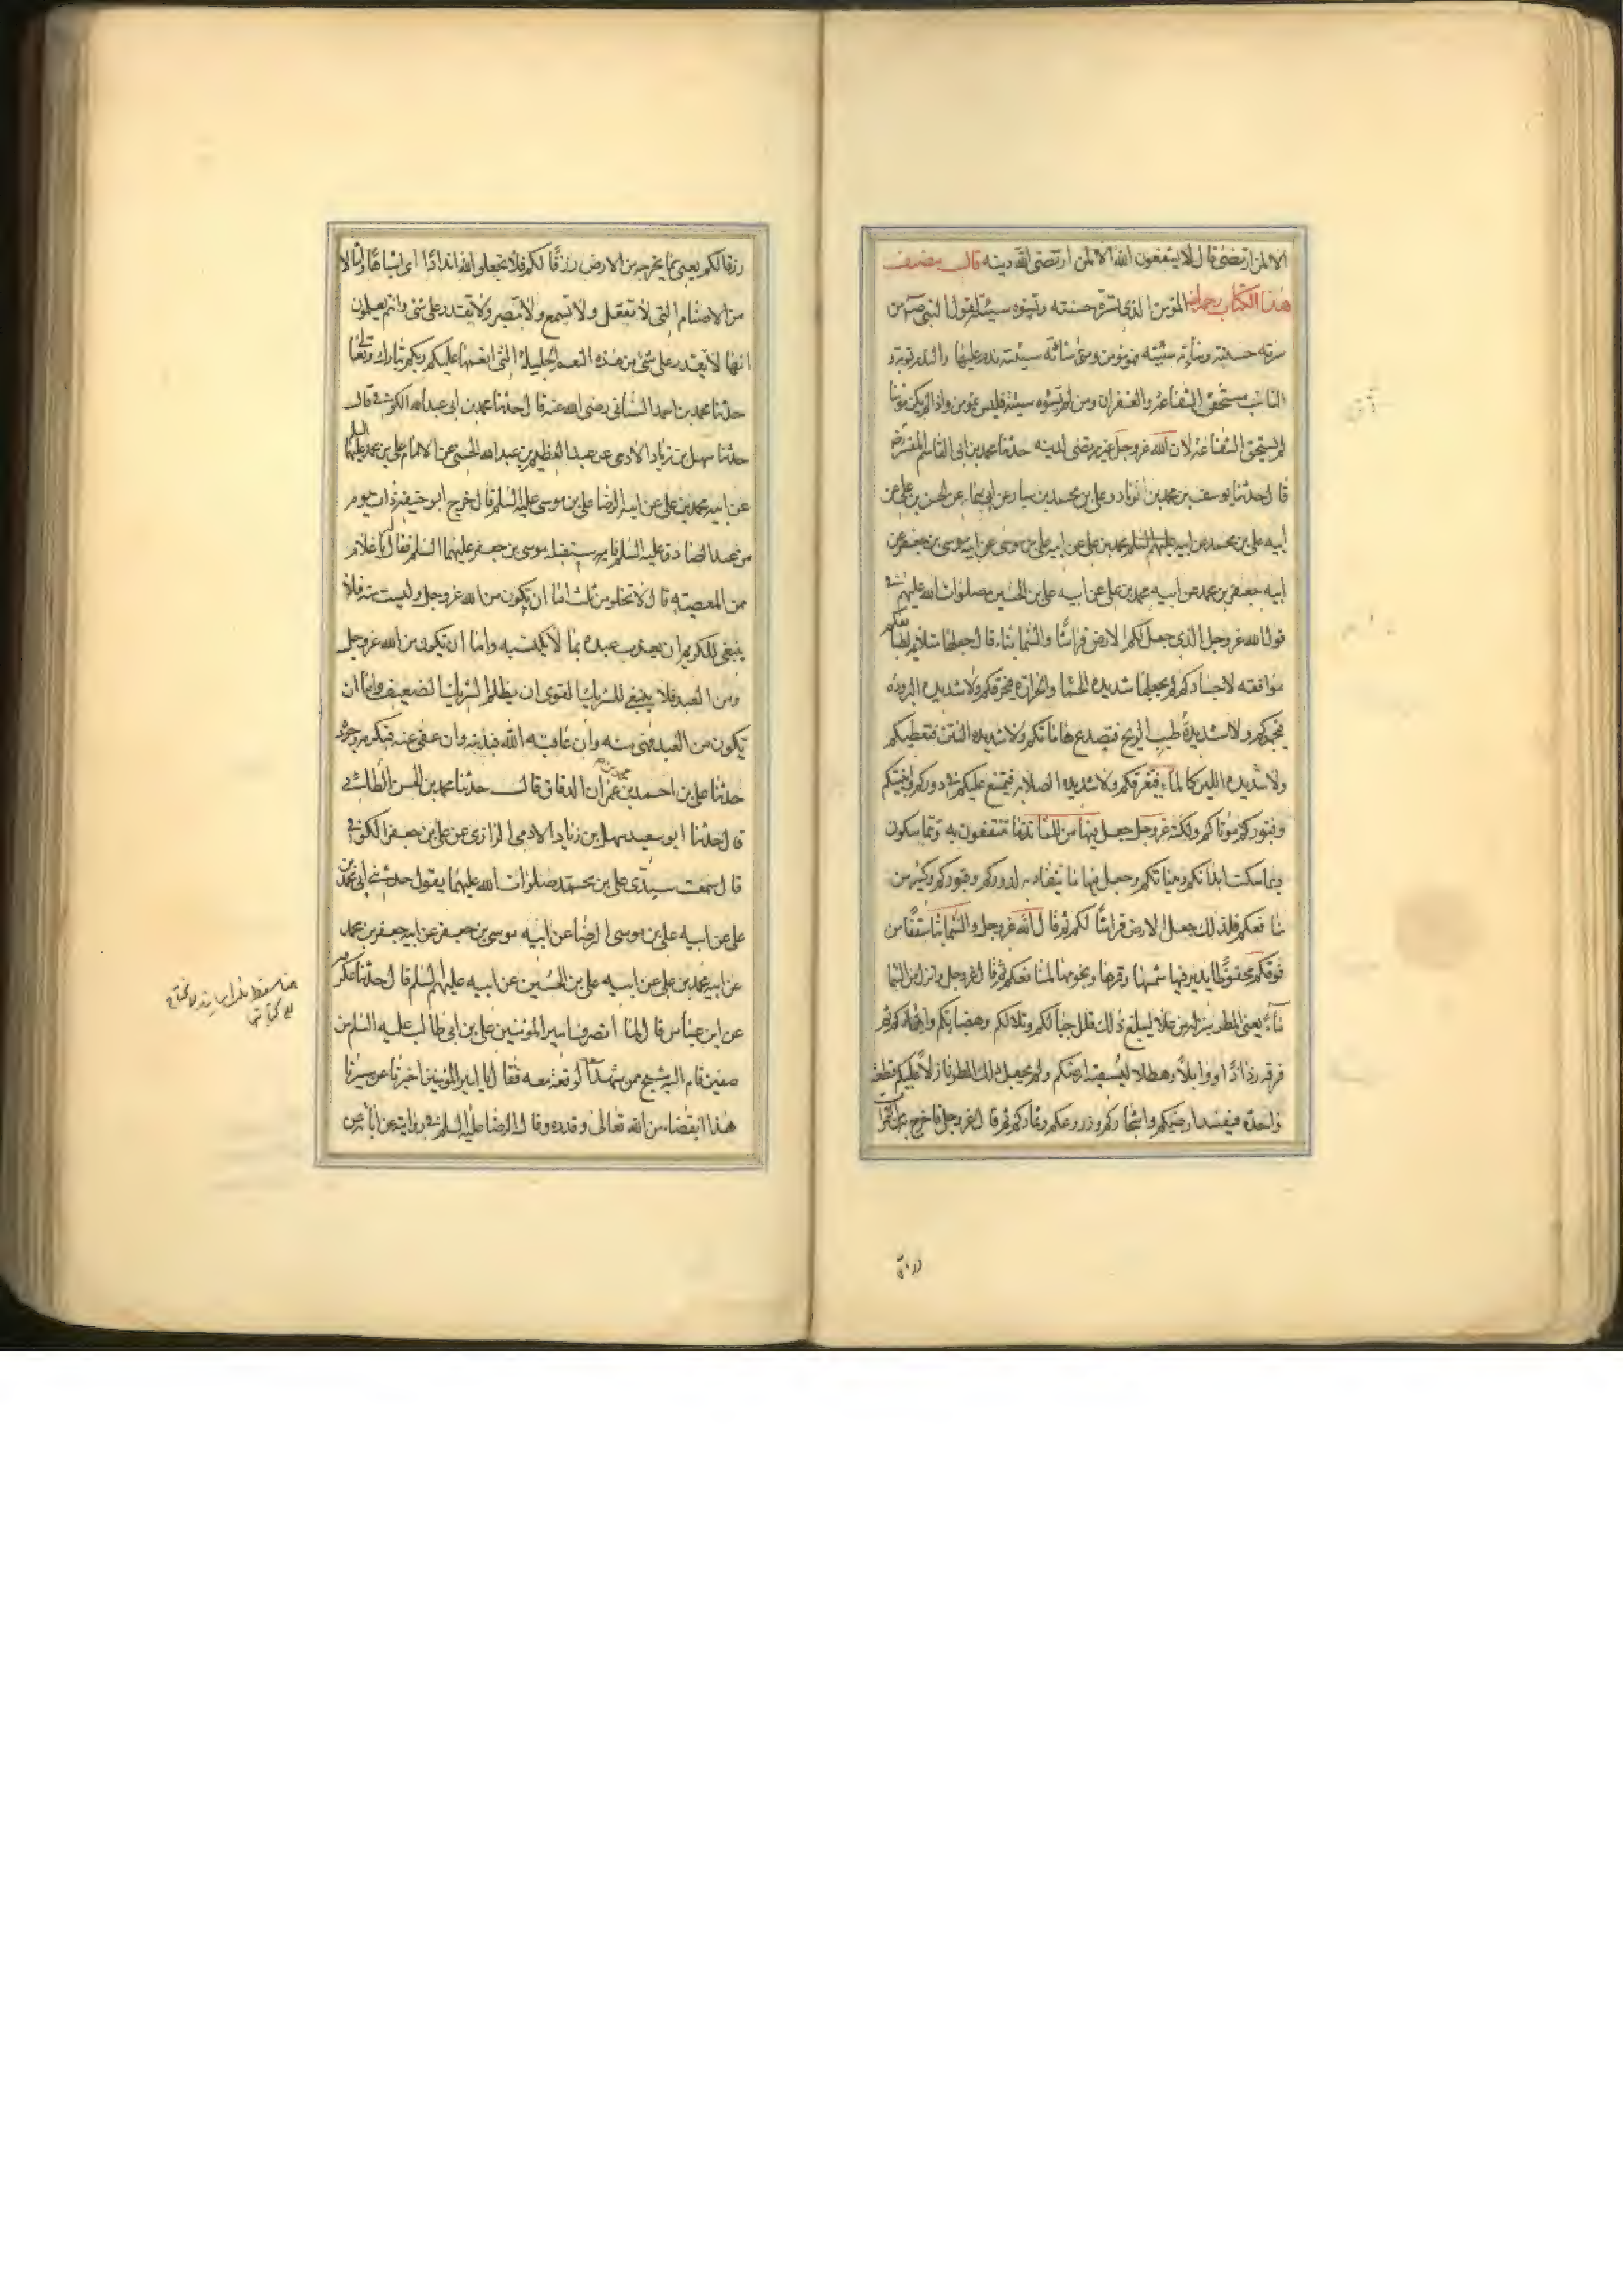 الا لمن ارتضى قال لا يشفعون الله الا لمن ارتضى الله دينه قال مصنف
هذا الكتاب رحمه الله المؤمن الذي تسره حسنته وتسوءه سيئته لقول النبي ص من
سرته حسنته وساءته سيئته فهو مؤمن ومتى ساءته سيئته ندم عليها والندم توبة و
التائب مستحق الشفاعة والغفران ومن لم تسوءه سيئته فليس بمؤمن واذا لم يكن مؤمنا
لم يستحق الشفاعة لان الله عز وجل غير مرتضى لدينه حدثنا محمد بن ابي القاسم المفسر رض
قال حدثنا يوسف بن محمد بن زياد وعلي بن محمد بن سيار عن ابويهما عن الحسن بن علي عن
ابيه علي بن محمد عن ابيه عليهم السلم محمد بن علي عن ابيه علي بن موسى عن ابيه موسى بن جعفر عن
ابيه جعفر بن محمد عن ابيه محمد بن علي عن ابيه علي بن الحسين صلوات الله عليهم في
قول الله عز وجل الذي جعل لكم الارض فراشا والسماء بناء قال جعلها ملائمة لطبايعكم
موافقة لاجسادكم لم يجعلها شديدة الحما والحرارة فيحرقكم ولا شديدة البرودة
فيجمدكم ولا شديدة طيب الريح فتصدع هاماتكم ولا شديدة النتن فتعطبكم
ولا شديدة اللين كالماء فيغرقكم ولا شديدة الصلابة فيمتنع عليكم في دوركم وابنيتكم
وقبوركم موتاكم ولكنه عز وجل جعل فيها من المتانة ما تنتفعون به وتتماسكون
وتماسكت ابدانكم وبنياتكم وجعل فيها ما ينقاد به لدوركم وقبوركم وكثير من
منافعكم فلذلك جعل الارض فراشا لكم ثم قال الله عز وجل والسماء بناء سقفا من
فوقكم محفوظا يدير فيها شمسها وقمرها ونجومها لمنافعكم ثم قال عز وجل وانزل من السماء
ماء يعني المطر ينزله من علا ليبلغ ذلك قلل جبالكم وتلالكم وهضابكم واوهادكم ثم
فرقه رذاذا ووابلا وهطلا لتنشفه ارضكم ولم يجعل ذلك المطر نازلا عليكم قطعة
واحدة فيفسد ارضيكم واشجاركم وزروعكم وثماركم ثم قال عز وجل فاخرج به من الثمرات
رزقا لكم يعني مما يخرجه من الارض رزقا لكم فلا تجعلوا لله اندادا اي اشباها وامثالا
من الاصنام التي لا تعقل ولا تسمع ولا تبصر ولا تقدر على شئ وانتم تعلمون
انها لا تقدر على شئ من هذه النعم الجليلة التي انعمها عليكم ربكم تبارك وتعالى
حدثنا محمد بن احمد السناني رضي الله عنه قال حدثنا محمد بن ابي عبد الله الكوفي قال
حدثنا سهل بن زياد الادمي عن عبد العظيم بن عبد الله الحسني عن الامام علي بن محمد عليهما السلم
عن ابيه محمد بن علي عن ابيه الرضا علي بن موسى عليه السلم قال خرج ابو حنيفة ذات يوم
من عند الصادق عليه السلم فاستقبله موسى بن جعفر عليهما السلم فقال له يا غلام
ممن المعصية قال لا تخلو من ثلث اما ان تكون من الله عز وجل وليست منه فلا
ينبغي للكريم ان يعذب عبده بما لا يكتسبه واما ان تكون من الله عز وجل
ومن العبد فلا ينبغي للشريك القوي ان يظلم الشريك الضعيف واما ان
تكون من العبد وهي منه وان عاقبه الله فبذنبه وان عفى عنه فبكرمه وجوده
حدثنا علي بن احمد بن محمد بن عمران الدقاق قال حدثنا محمد بن الحسن الطائي
قال حدثنا ابو سعيد سهل بن زياد الادمي الرازي عن علي بن جعفر الكوفي
قال سمعت سيدي علي بن محمد صلوات الله عليهما يقول حدثني ابي محمد بن
علي عن ابيه علي بن موسى الرضا عن ابيه موسى بن جعفر عن ابيه جعفر بن محمد
عن ابيه محمد بن علي عن ابيه علي بن الحسين عن ابيه عليهم السلم قال حدثنا عكرمة
عن ابن عباس قال لما انصرف امير المؤمنين علي بن ابي طالب عليه السلم من
صفين قام اليه شيخ ممن شهد الوقعة معه فقال يا امير المؤمنين اخبرنا عن مسيرنا
هذا ابقضاء من الله تعالى وقدره وقال الرضا عليه السلم في روايته عن ابائه عن
رزقا